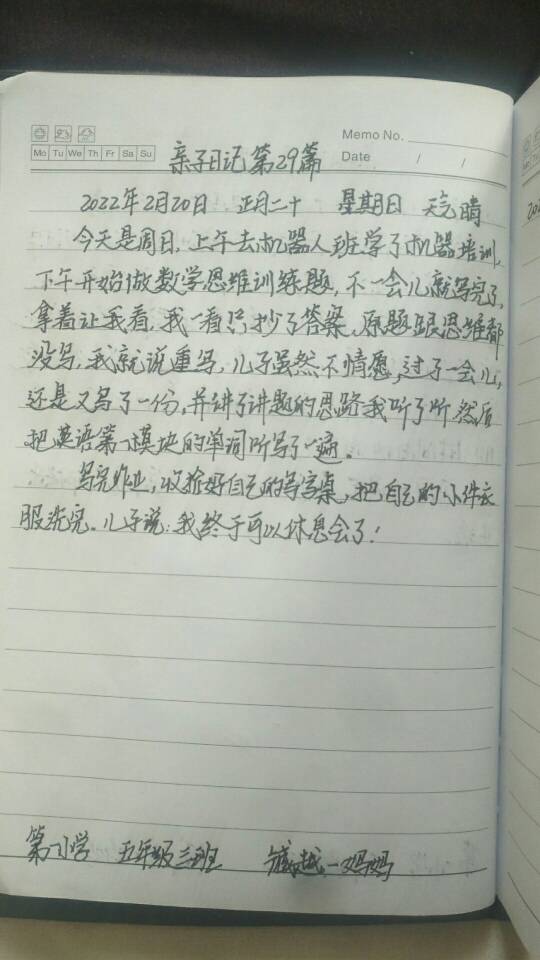 Memo No.
Mo Tu We Th Fr Sa Su
Date / /
亲子日记第29篇
2022年2月20日 正月二十 星期日 天气晴
今天是周日，上午去机器人班学了机器培训，
下午开始做数学思维训练题，不一会儿就写完了，
拿着让我看，我一看只抄了答案，原题跟思维都
没写，我就说重写，儿子虽然不情愿，过了一会儿，
还是又写了一份，并讲了讲题的思路我听了听，然后
把英语第一模块的单词听写了一遍。
写完作业，收拾好自己的写字桌，把自己的小件衣
服洗完。儿子说：我终于可以休息会了！
第一小学 五年级三班 臧越一妈妈